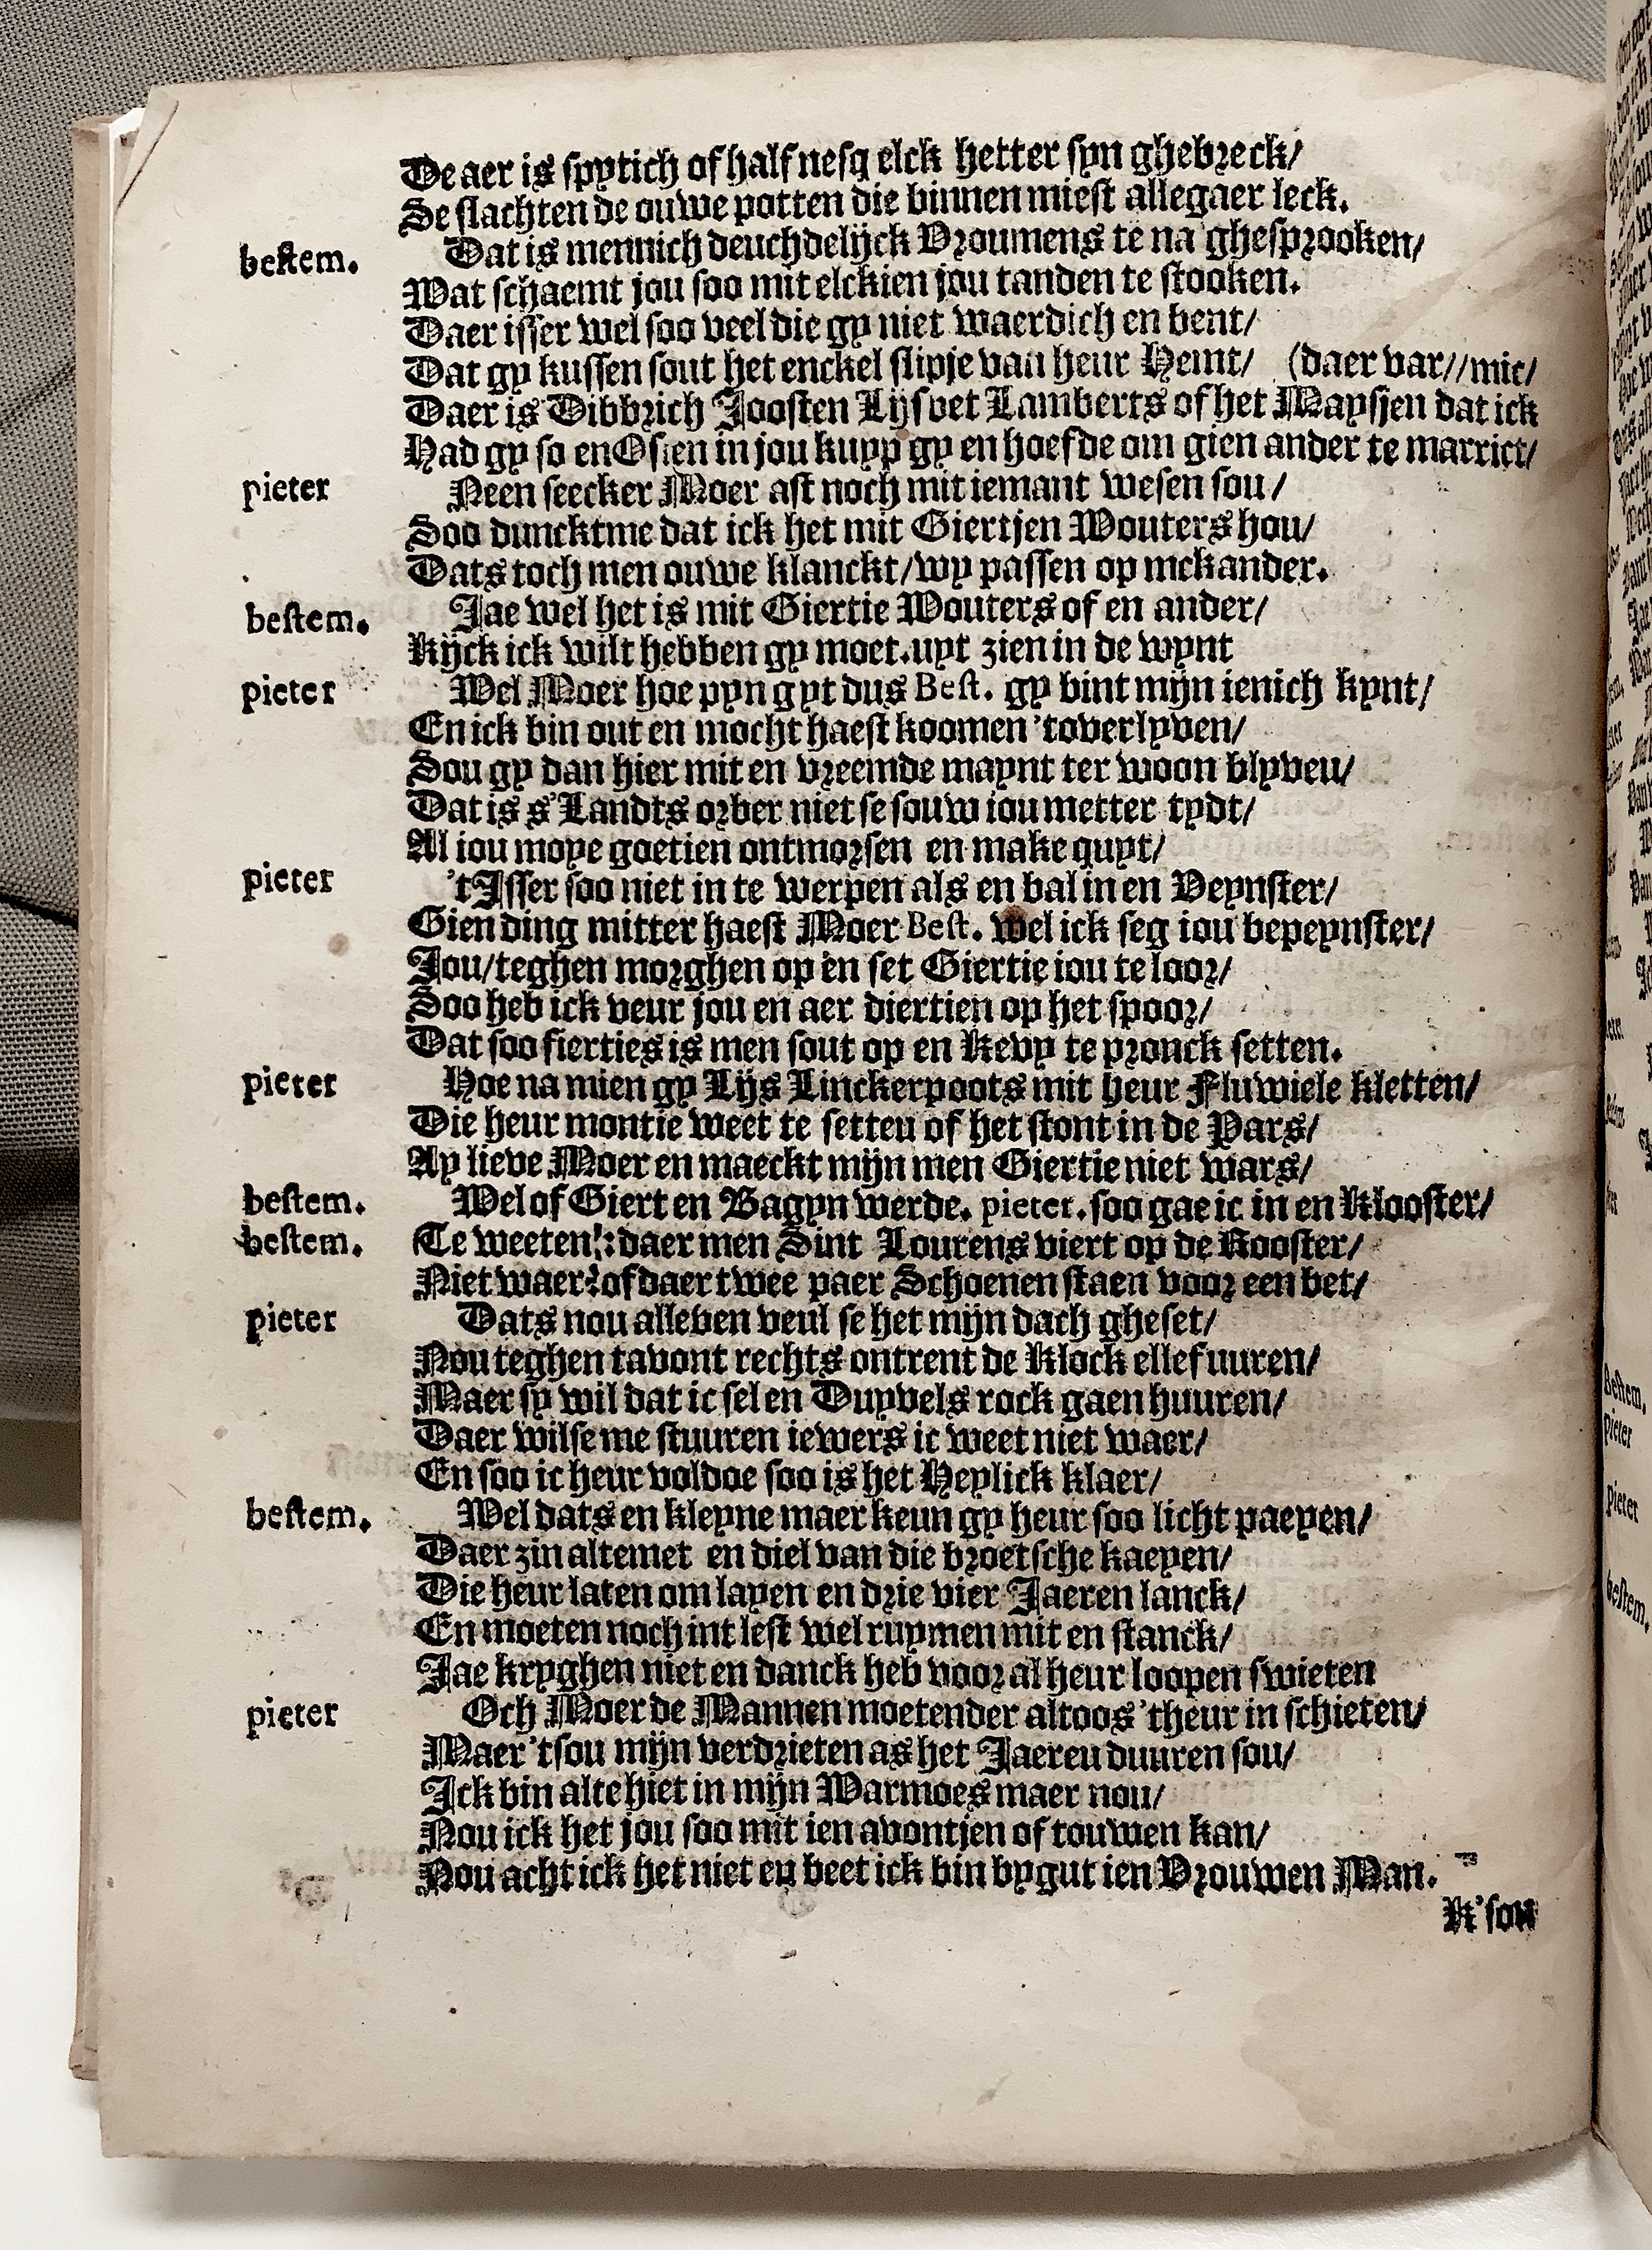 De aer is spytich of half nesq elck hetter syn ghebreck/
Se slachten de ouwe potten die binnen miest allegaer leck.
bestem. Dat is mennich deuchdelijck Vroumens te na ghesprooken/
Wat schaemt jou soo mit elckien jou tanden te stooken.
Daer isser wel soo veel die gy niet waerdich en bent/
Dat gy kussen sout het enckel slipje van heur Hemt/ (daer var//mic/
Daer is Dibbrich Joosten Lijsvet Lamberts of het Maysjen dat ick
Had gy so en Osien in jou kuyp gy en hoefde om gien ander te marrict/
pieter Neen seecker Moer ast noch mit iemant wesen sou/
Soo duncktme dat ick het mit Giertjen Wouters hou/
Dats toch men ouwe klanckt/wy passen op mekander.
bestem. Jae wel het is mit Giertie Wouters of en ander/
Kijck ick wilt hebben gy moet.uyt zien in de wynt
pieter Wel Moer hoe pyn gyt dus Best. gy bint mijn ienich kynt/
En ick bin out en mocht haest koomen 'toverlyven/
Sou gy dan hier mit en vreemde maynt ter woon blyveu/
Dat is s'Landts orber niet se souw iou metter tydt/
Al iou moye goetien ontmorsen en make quyt/
pieter 't Isser soo niet in te werpen als en bal in en Veynster/
Gien ding mitter haest Moer Best. wel ick seg iou bepeynster/
Jou/teghen morghen op en set Giertie iou te loor/
Soo heb ick veur jou en aer diertien op het spoor/
Dat soo fierties is men sout op en Kevy te pronck setten.
pieter Hoe na mien gy Lijs Linckerpoots mit heur Fluwiele kletten/
Die heur montie weet te setteu of het stont in de Pars/
Ay lieve Moer en maeckt mijn men Giertie niet wars/
bestem. Wel of Giert en Bagyn werde. pieter. soo gae ic in en Klooster/
bestem. Te weeten!: daer men Sint Lourens viert op de Rooster/
Niet waer? of daer twee paer Schoenen staen voor een bet/
pieter Dats nou alleven veul se het mijn dach gheset/
Nou teghen tavont rechts ontrent de Klock ellef uuren/
Maer sy wil dat ic sel en Duyvels rock gaen huuren/
Daer wilse me stuuren iewers ic weet niet waer/
En soo ic heur voldoe soo is het Heylick klaer/
bestem. Wel dats en kleyne maer keun gy heur soo licht paeyen/
Daer zin altemet en diel van die broetsche kaeyen/
Die heur laten om layen en drie vier Jaeren lanck/
En moeten noch int lest wel ruymen mit en stanck/
Jae kryghen niet en danck heb voor al heur loopen swieten
pieter Och Moer de Mannen moetender altoos 'theur in schieten/
Maer 'tsou mijn verdrieten as het Jaereu duuren sou/
Ick bin alte hiet in mijn Warmoes maer nou/
Nou ick het jou soo mit ien avontjen of touwen kan/
Nou acht ick het niet en beet ick bin bygut ien Vrouwen Man.
K'sou